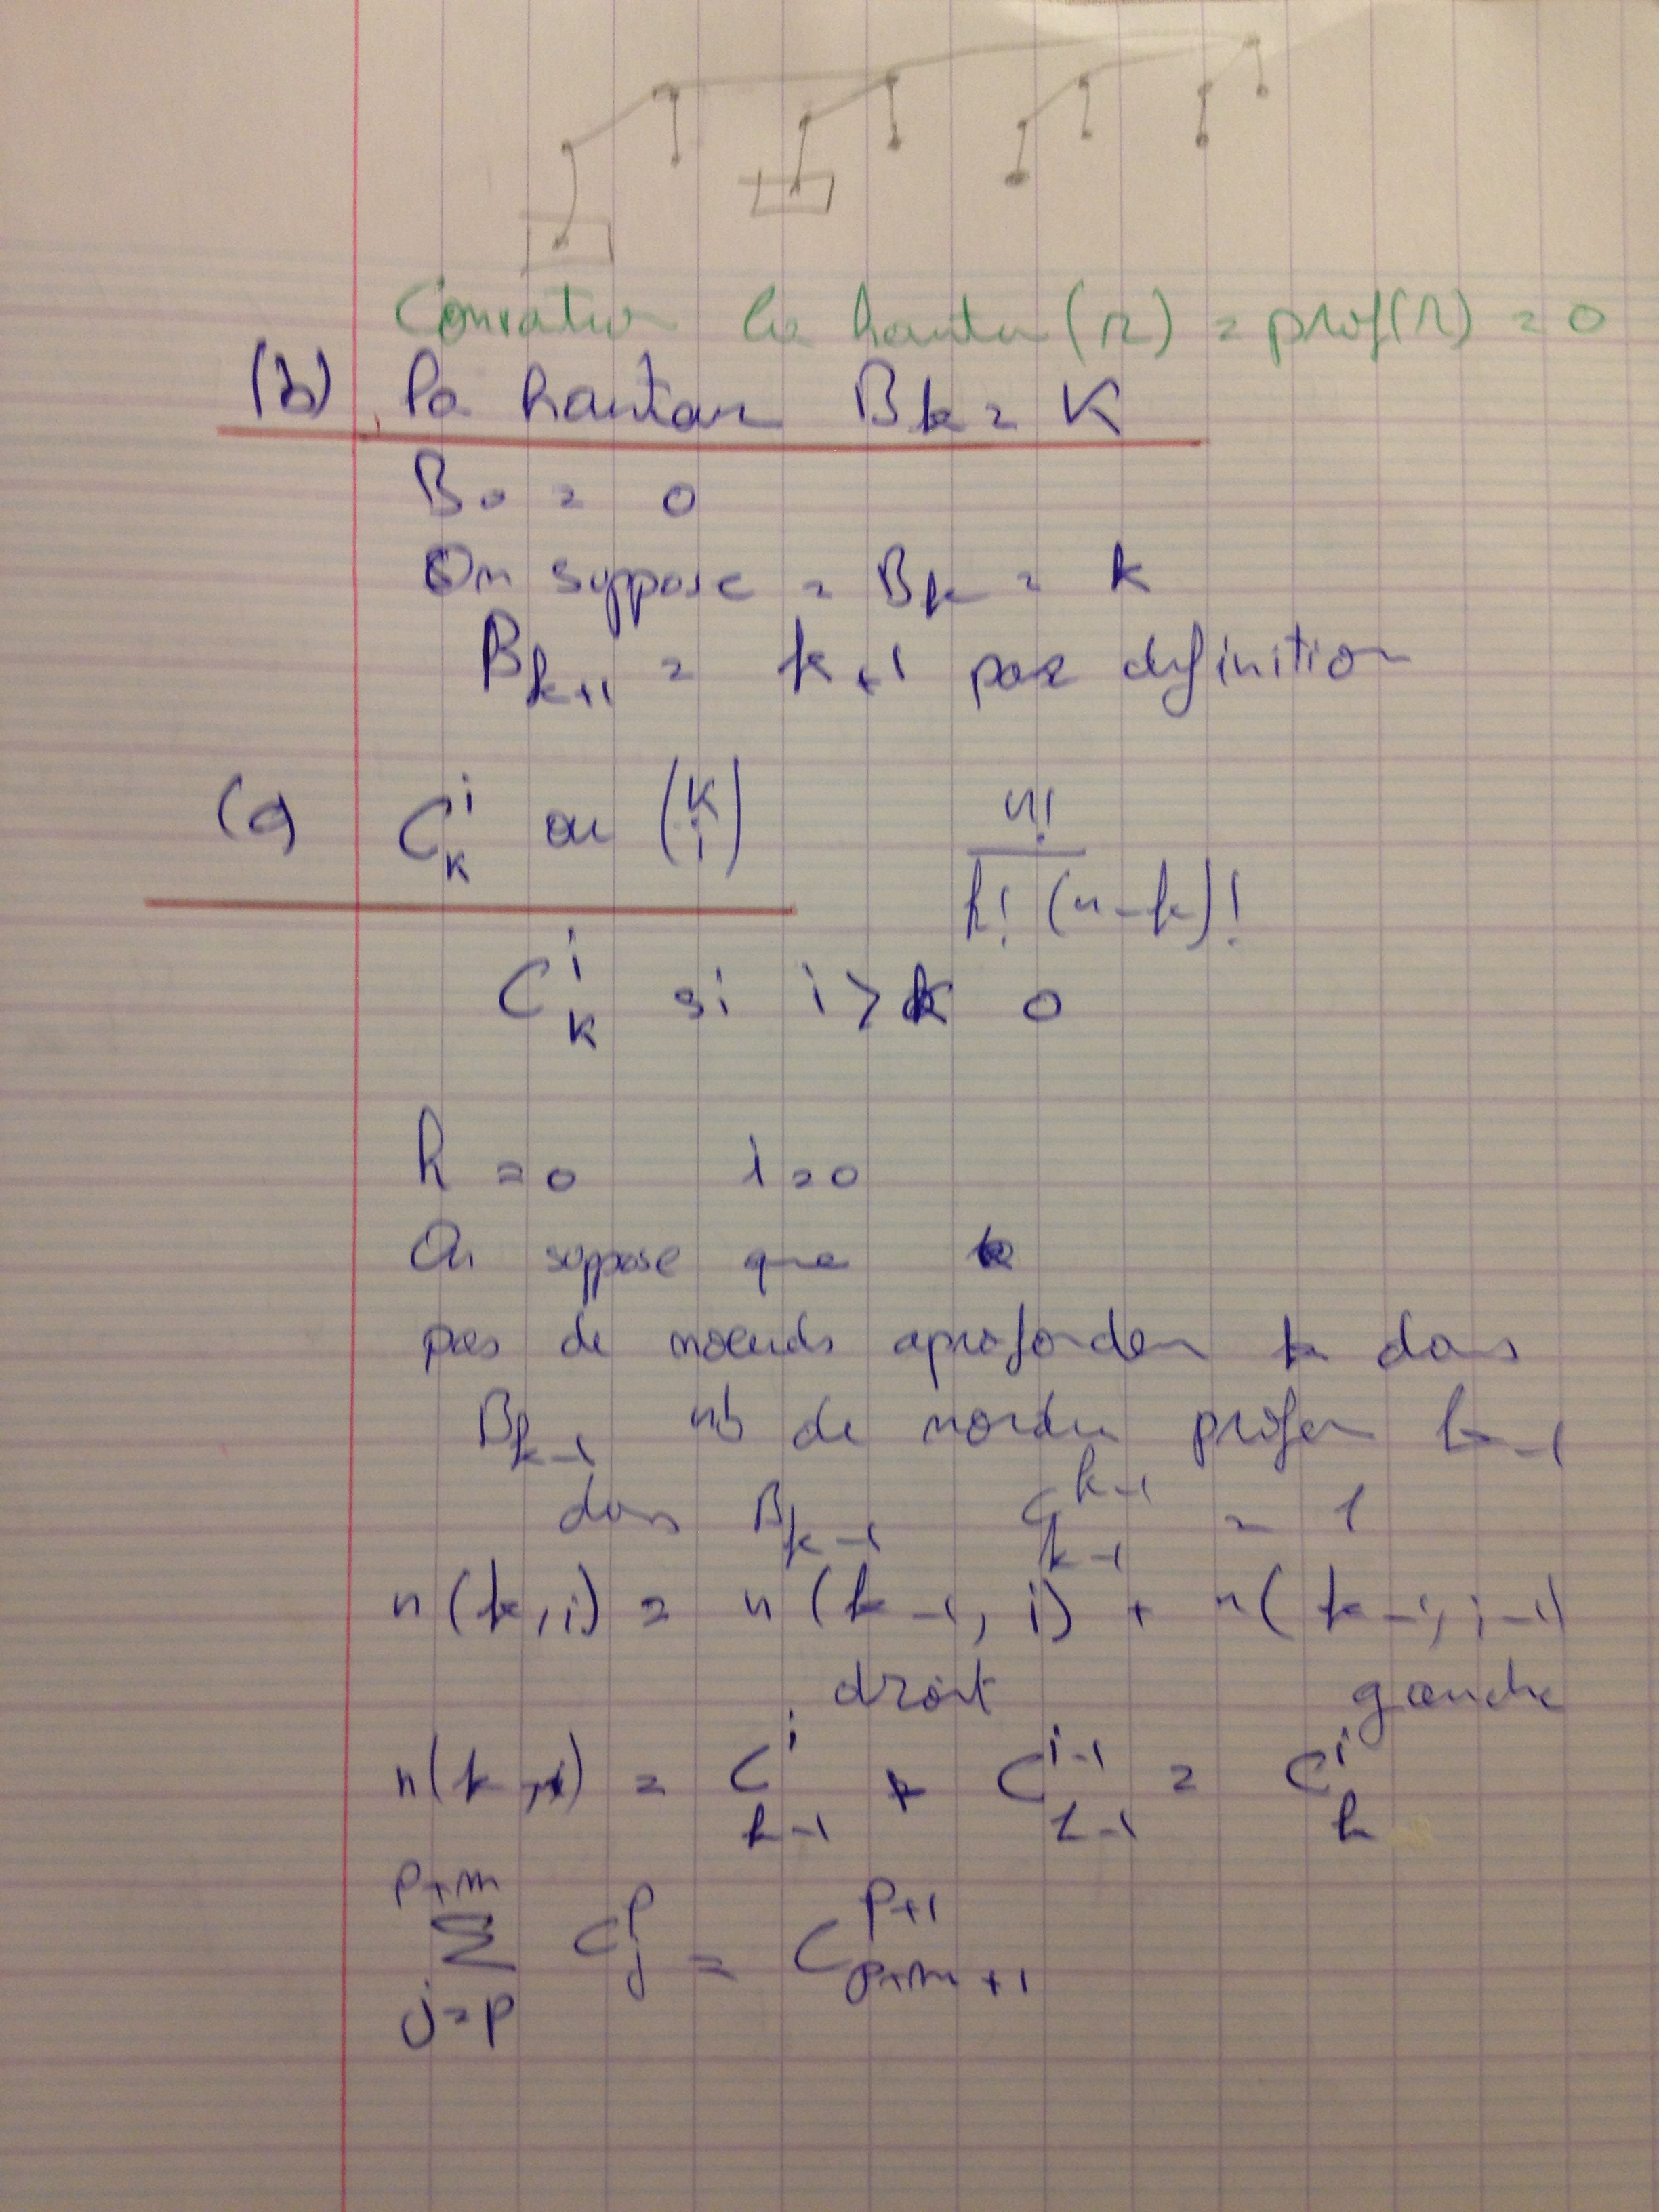 Convention la hauteur (r) = prof(r) = 0
(b) la hauteur Bk = K
B0 = 0
On suppose = Bk = k
Bk+1 = k+1 par definition
(c) C_k^i ou (k i) n! / k! (n-k)!
C_k^i si i > k 0
k = 0 i = 0
On suppose que k
pas de noeuds a profondeur k dans
Bk-1 nb de noeuds profon k-1
dans Bk-1 C_{k-1}^{k-1} = 1
n(k, i) = n(k-1, i) + n(k-1, i-1)
droit gauche
n(k, i) = C_{k-1}^i + C_{k-1}^{i-1} = C_k^i
∑_{j=p}^{p+m} C_j^p = C_{p+m+1}^{p+1}